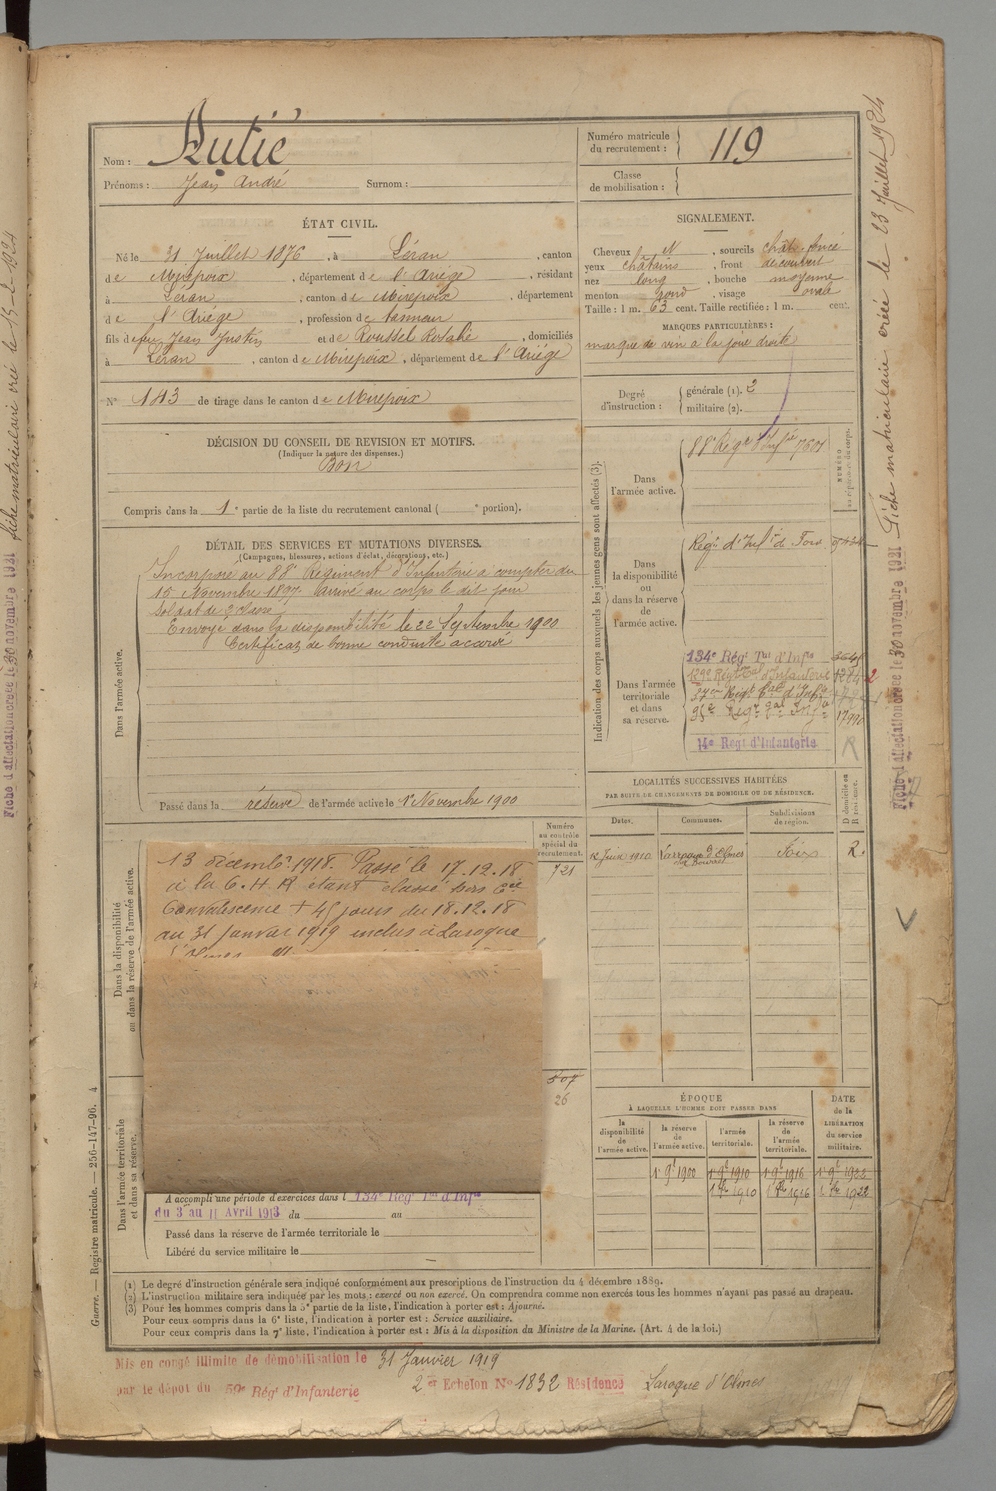 Nom : Autié
Prénoms : Jean André Surnom :
Numéro matricule du recrutement : 119
Classe de mobilisation :
ÉTAT CIVIL.
Né le 31 Juillet 1876, à Léran, canton
de Mirepoix, département de l'Ariège, résidant
à Léran, canton de Mirepoix, département
de l'Ariége, profession de tanneur
fils de feu Jean Justin et de Roussel Rosalie, domiciliés
à Léran, canton de Mirepoix, département de l'Ariége
N° 143 de tirage dans le canton de Mirepoix
DÉCISION DU CONSEIL DE REVISION ET MOTIFS.
(Indiquer la nature des dispenses.)
Bon
Compris dans la 1e partie de la liste du recrutement cantonal ( e portion).
DÉTAIL DES SERVICES ET MUTATIONS DIVERSES.
(Campagnes, blessures, actions d'éclat, décorations, etc.)
Dans l'armée active.
Incorporé au 88e Régiment d'Infanterie a compter du
15 Novembre 1897. Arrivé au corps le dit jour
Soldat de 2e classe.
Envoyé dans la disponibilité le 22 Septembre 1900
Certificat de bonne conduite accordé
Passé dans la réserve de l'armée active le 1er Novembre 1900
Numéro au contrôle spécial du recrutement.
721
Dans la disponibilité ou dans la réserve de l'armée active.
13 décembre 1918. Passé le 17.12.18
à la C.H.R étant classé hors Cie
Convalescence + 45 jours du 18.12.18
au 31 Janvier 1919 inclus à Laroque
507
26
Dans l'armée territoriale et dans sa réserve.
A accompli une période d'exercices dans l 134e Régt Tal d'Infie
du 3 au 11 Avril 1913 du au
Passé dans la réserve de l'armée territoriale le
Libéré du service militaire le
SIGNALEMENT.
Cheveux N, sourcils chât. foncé
yeux châtains, front découvert
nez long, bouche moyenne
menton rond, visage ovale
Taille : 1 m. 63 cent. Taille rectifiée : 1 m. cent.
MARQUES PARTICULIÈRES :
marque de vin a la joue droite
Degré d'instruction : générale (1). 2
militaire (2).
Indication des corps auxquels les jeunes gens sont affectés (3).
Dans l'armée active.
88e Régt d'Infie 7601
Dans la disponibilité ou dans la réserve de l'armée active.
Régt d'Infie de Foix
Dans l'armée territoriale et dans sa réserve.
134e Régt Tal d'Infie
129e Régt Tal d'Infanterie
37e Régt Tal d'Infie
95e Régt Tal Infie
14e Régt d'Infanterie
LOCALITÉS SUCCESSIVES HABITÉES
PAR SUITE DE CHANGEMENTS DE DOMICILE OU DE RÉSIDENCE.
Dates. Communes. Subdivisions de région. D domicile ou R résidence.
12 Juin 1910 Laroque d'Olmes Foix R.
ÉPOQUE
À LAQUELLE L'HOMME DOIT PASSER DANS
DATE de la LIBÉRATION du service militaire.
la disponibilité de l'armée active. la réserve de l'armée active. l'armée territoriale. la réserve de l'armée territoriale.
1er 9bre 1900 1er 9bre 1910 1er 9bre 1916 1er 9bre 1922
1er 8bre 1910 1er 8bre 1916 1er 8bre 1922
(1) Le degré d'instruction générale sera indiqué conformément aux prescriptions de l'instruction du 4 décembre 1889.
(2) L'instruction militaire sera indiquée par les mots : exercé ou non exercé. On comprendra comme non exercés tous les hommes n'ayant pas passé au drapeau.
(3) Pour les hommes compris dans la 5e partie de la liste, l'indication à porter est : Ajourné.
Pour ceux compris dans la 6e liste, l'indication à porter est : Service auxiliaire.
Pour ceux compris dans la 7e liste, l'indication à porter est : Mis à la disposition du Ministre de la Marine. (Art. 4 de la loi.)
Mis en congé illimité de démobilisation le 31 Janvier 1919
par le dépôt du 59e Régt d'Infanterie 2er Echelon No 1832 Résidence Laroque d'Olmes
Guerre. — Registre matricule. — 256-147-96. 4
Fiche d'affectation créée le 30 novembre 1921 Fiche matriculaire créée le 23 Juillet 1924
Fiche d'affectation créée le 30 novembre 1921 fiche matriculaire créé le